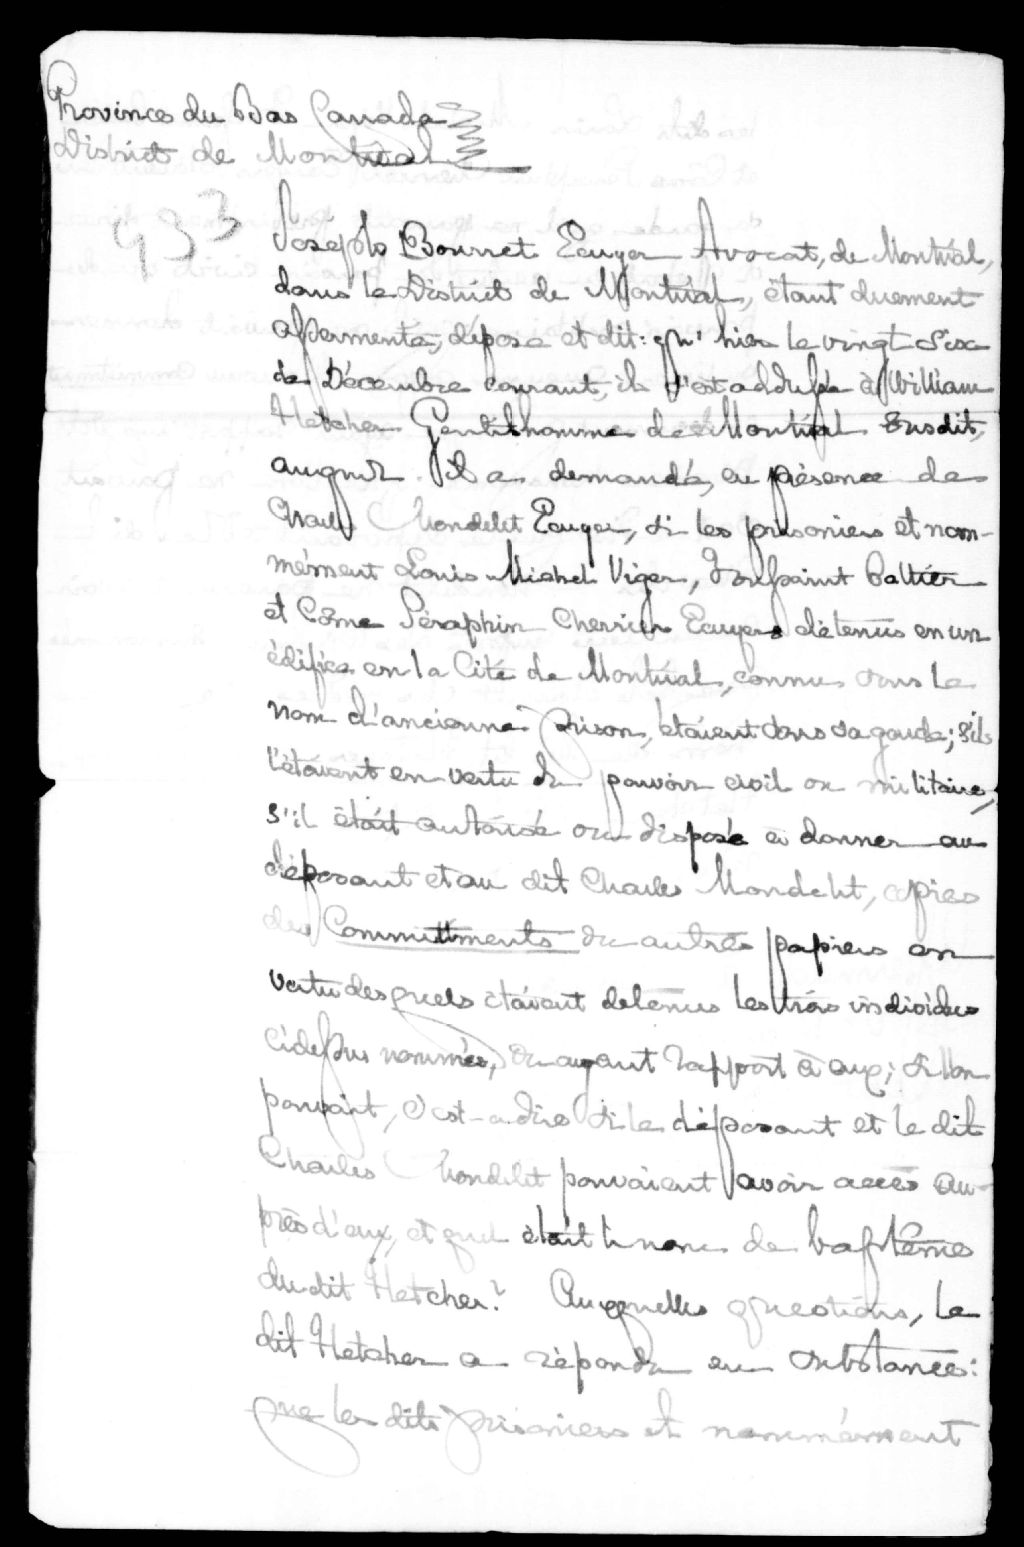 Province du Bas Canada
District de Montréal
433
Joseph Bonnet Ecuyer Avocat, de Montréal,
dans le District de Montréal, étant duement
assermenté, dépose et dit: qu'hier le vingt Six
de Décembre courant, il s'est addressé à William
Hetcher Gentilhomme de Montréal Susdit,
auquel il a demandé, en présence de
Charles Mondelet Ecuyer, si les prisoniers et nom-
mément Louis Michel Viger, Toussaint Peltier
et Côme Séraphin Cherrier Ecuyers détenus en un
édifice en la Cité de Montréal, connu sous le
nom d'ancienne prison, étaient dans sa garde; s'ils
l'étaient en vertu du pouvoir civil ou militaire,
s'il était autorisé ou disposé à donner au
déposant et au dit Charles Mondelet, copies
des Committments ou autres papiers en
vertu desquels étaient detenus les trois individus
cidessus nommés, ou ayant rapport à eux; si l'on
pouvait, c'est-a-dire si le déposant et le dit
Charles Mondelet pouvaient avoir accès au-
près d'eux, et quel était le nom de baptême
du dit Hetcher? Auxquelles questions, le
dit Hetcher a répondu en substance:
que les dits prisoniers et nommément